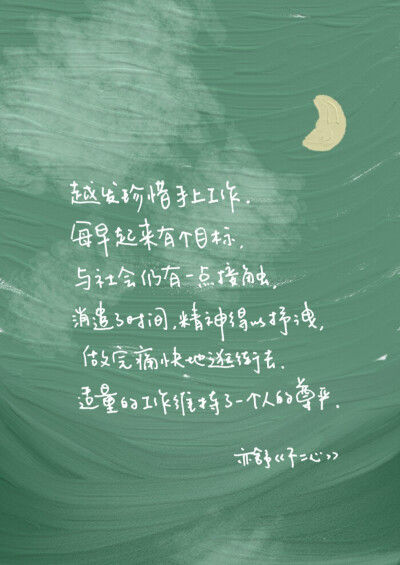 越发珍惜手上工作.
每早起来有个目标.
与社会仍有一点接触,
消遣了时间,精神得以抒洩,
做完痛快地逛街去.
适量的工作维持了一个人的尊严.
亦舒《不二心》